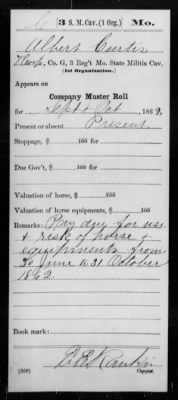 C 3 S. M. Cav. (1 Org.) Mo.
Albert Curtis
, Co. G, 3 Reg't Mo. State Militia Cav.
(1st Organization.)
Appears on
Company Muster Roll
for Sept & Oct, 1862.
Present or absent Present
Stoppage, $ 100 for
Due Gov't, $ 100 for
Valuation of horse, $ 100
Valuation of horse equipments, $ 100
Remarks: Pay due for use
& risk of horse &
equipments from
30 June to 31 October
1862
Book mark:
(358)
Copyist.